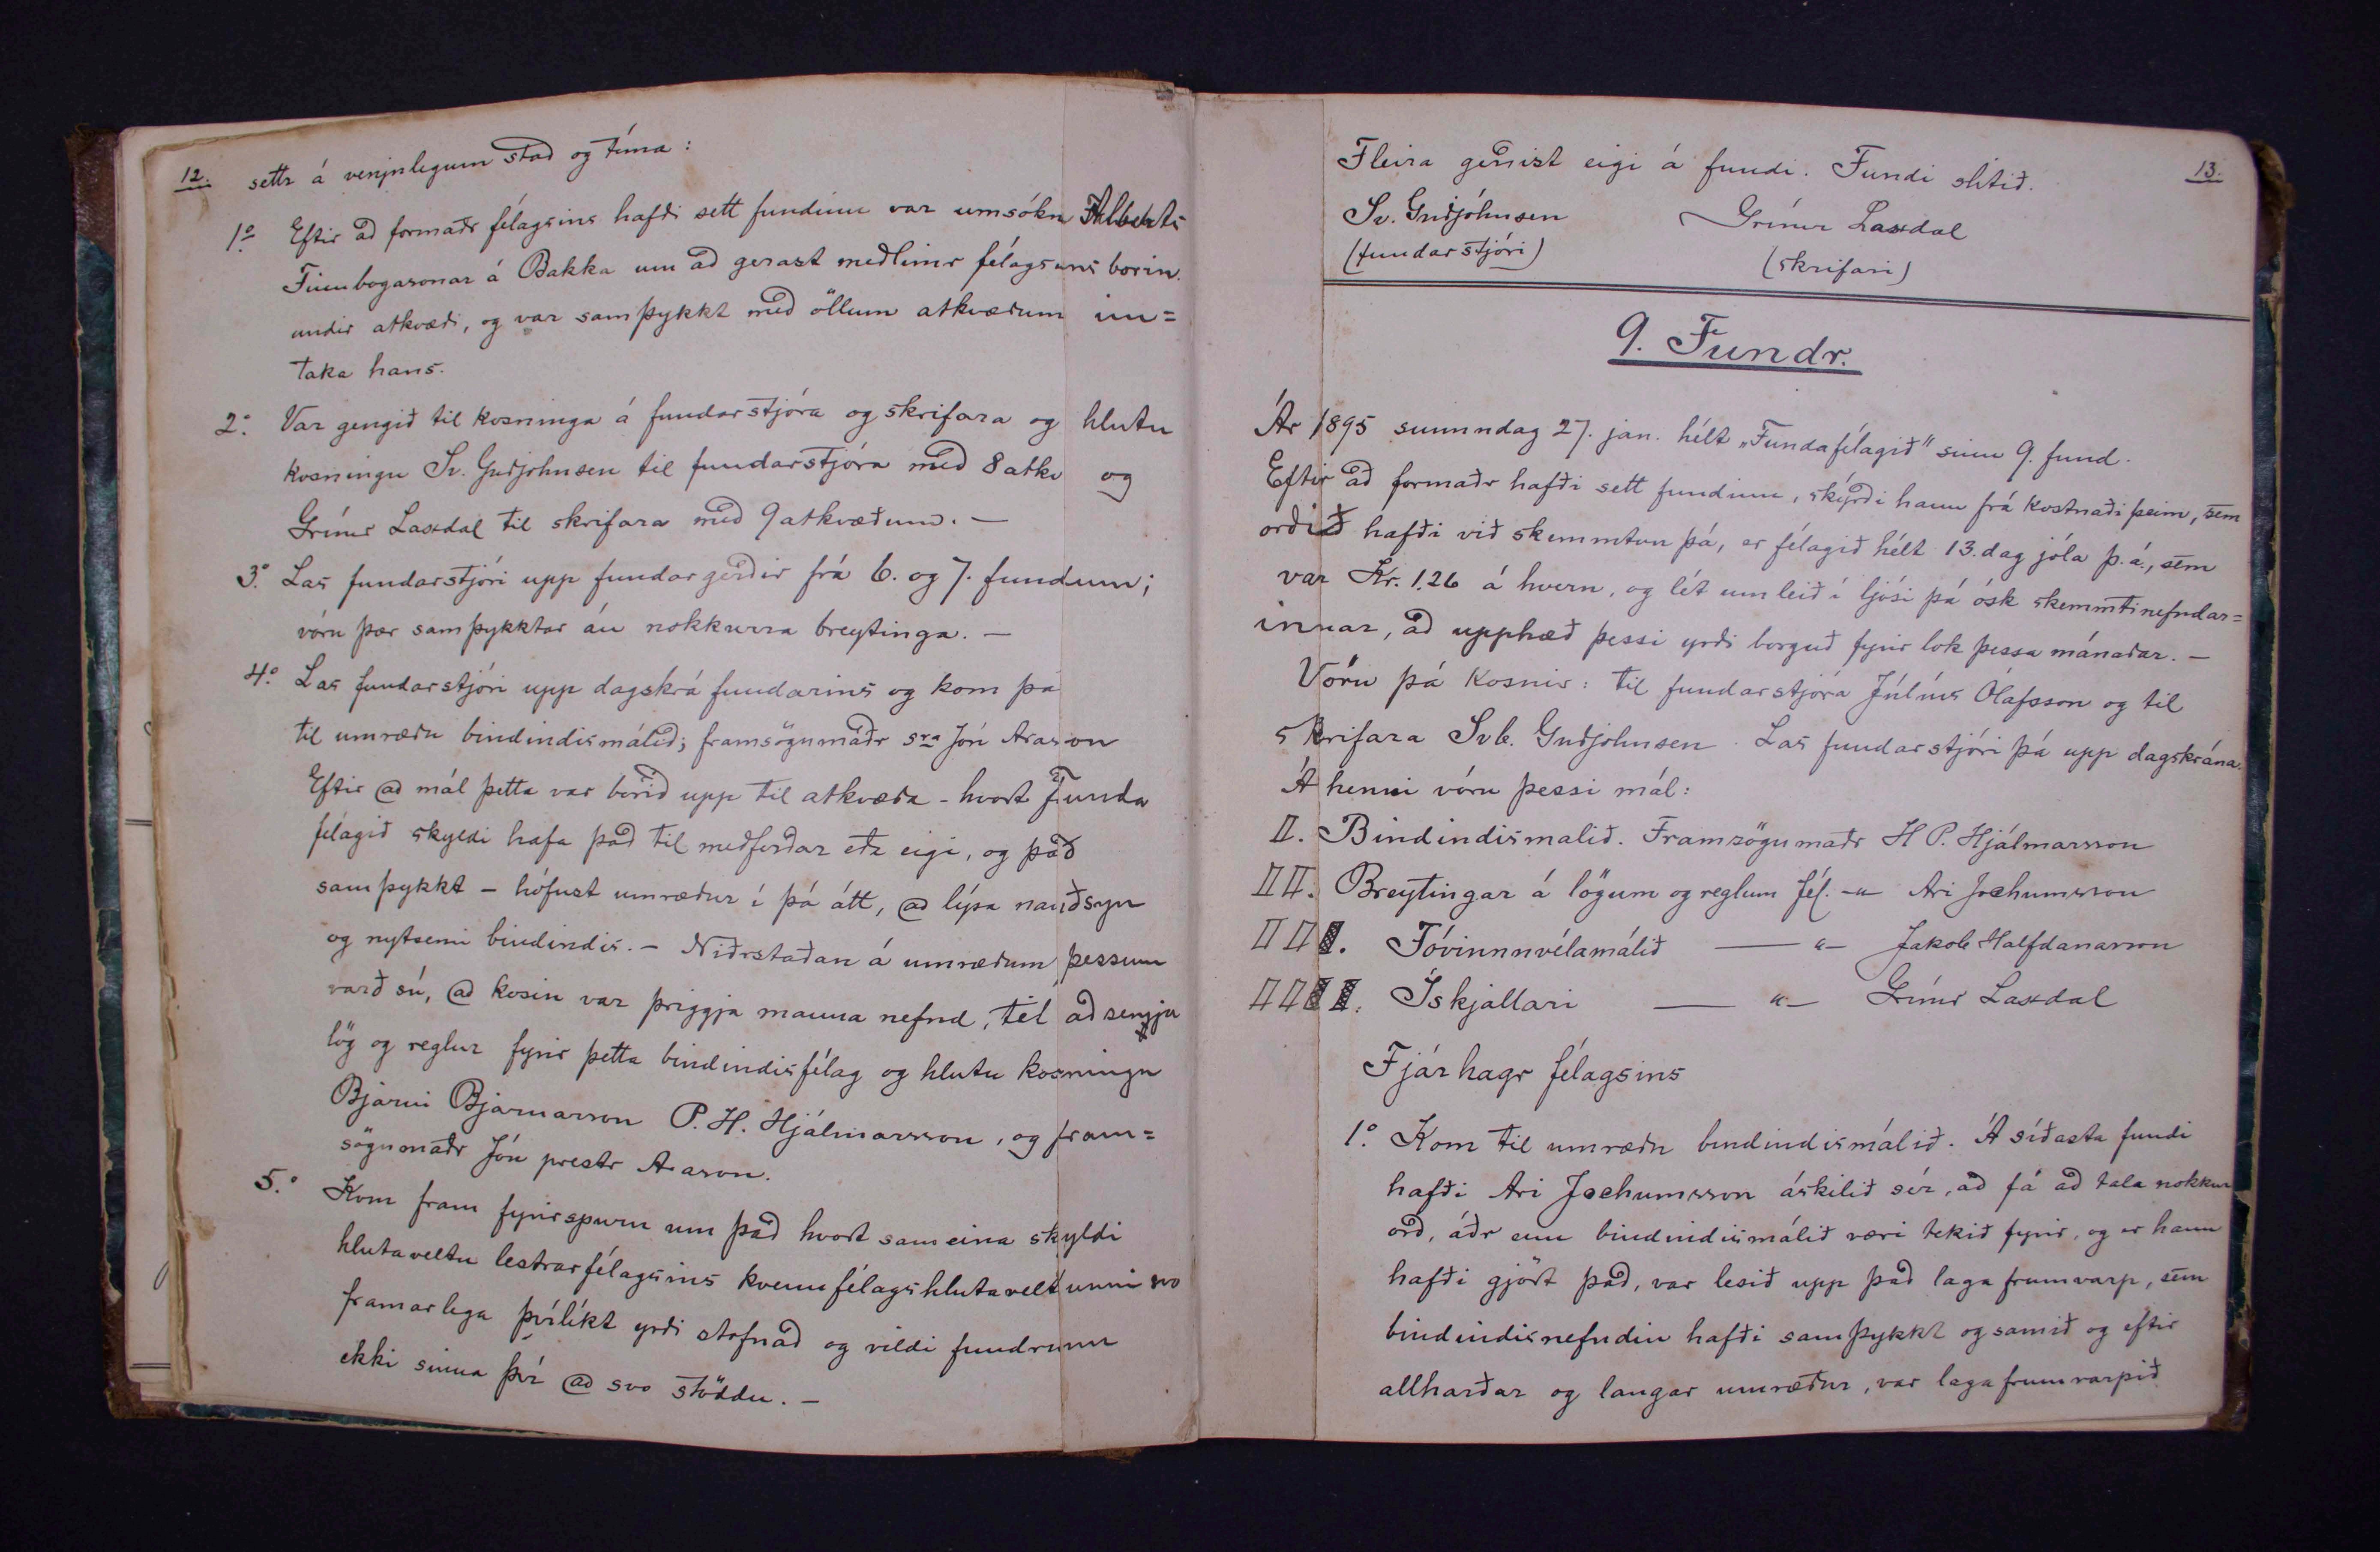 12.
settr á venjulegum stað og tíma:
1º Eftir að formaðr félagsins hafði sett fundinn var umsókn Alberts
Finnbogasonar á Bakka um að gerast meðlimr félagsins borin
undir atkvæði, og var samþykkt með öllum atkvæðum inn=
taka hans.
2º. Var gengið til kosninga á fundarstjóra og skrifara og hlutu
kosningu Sv. Guðjohnsen til fundarstjóra með 8 atkv og
Grímr Laxdal til skrifara með 9 atkvæðum. —
3º. Las fundarstjóri upp fundargerðir frá 6. og 7. fundum;
vóru þær samþykktar án nokkurra breytinga. —
4º. Las fundarstjóri upp dagskrá fundarins og kom þá
til umræðu bindindismálið; framsögumaðr sra Jón Arason
Eftir @ mál þetta var borið upp til atkvæða - hvort Funda
félagið skyldi hafa það til meðferðar eða eigi, og það
samþykkt - hófust umræður í þá átt, @ lýsa nauðsyn
og nytsemi bindindis. - Niðrstaðan á umræðum þessum
varð sú, @ kosin var þriggja manna nefnd, til að semja
lög og reglur fyrir þetta bindindisfélag og hlutu kosningu
Bjarni Bjarnarson P. H. Hjálmarsson, og fram=
sögumaðr Jón prestr Arason.
5.º Kom fram fyrirspurn um það hvort sameina skyldi
hlutaveltu lestrarfélagsins kvennfélagshlutaveltunni svo
framarlega þvílíkt yrði stofnað og vildi fundrinn
ekki sinna því @ svo stöddu. —
13.
Fleira gerðist eigi á fundi. Fundi slitið.
Sv. Guðjóhnsen Grímur Laxdal
(fundarstjóri) (skrifari)
9. Fundr.
Ár 1895 sunnudag 27. jan. hélt „Fundafélagið" sinn 9. fund.
Eftir að formaðr hafði sett fundinn, skýrði hann frá kostnaði þeim, sem
orðið hafði við skemmtun þá, er félagið hélt 13. dag jóla þ. á., sem
var Kr. 1.26 á hvern, og lét um leið í ljósi þá ósk skemmtinefndar=
innar, að upphæð þessi yrði borguð fyrir lok þessa mánaðar. —
Vóru þá kosnir: til fundarstjóra Júlíus Ólafsson og til
skrifara Svb. Guðjohnsen. Las fundarstjóri þá upp dagskrána.
Á henni vóru þessi mál:
I. Bindindismalið. Framsögumaðr H P. Hjálmarsson
II. Breytingar á lögum og reglum fél. -"- Ari Jochumsson
III. Tóvinnnvélamálið —"— Jakob Halfdanarson
IIII. Ískjallari —"— Grímr Laxdal
Fjárhagr félagsins
1.º Kom til umræðu bindindismálið. Á síðasta fundi
hafði Ari Jochumsson áskilið sér, að fá að tala nokkur
orð, áðr enn bindindismálið væri tekið fyrir, og er hann
hafði gjört það, var lesið upp það laga frumvarp, sem
bindindisnefndin hafði samþykkt og samið og eftir
allharðar og langar umræður, var lagafrumvarpið